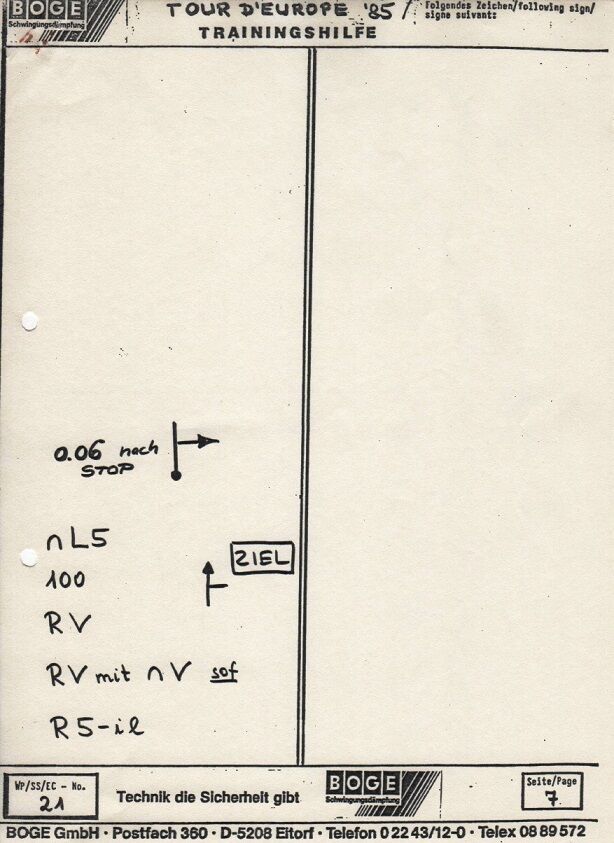 BOGE
Schwingungsdämpfung
TOUR D'EUROPE '85
TRAININGSHILFE
Folgendes Zeichen/following sign/
signe suivant:
0.06 nach
STOP
nL5
100
RV
RV mit nV sof
R5-il
ZIEL
WP/SS/EC - No.
21
Technik die Sicherheit gibt
BOGE
Schwingungsdämpfung
Seite/Page
7
BOGE GmbH · Postfach 360 · D-5208 Eitorf · Telefon 0 22 43/12-0 · Telex 08 89 572